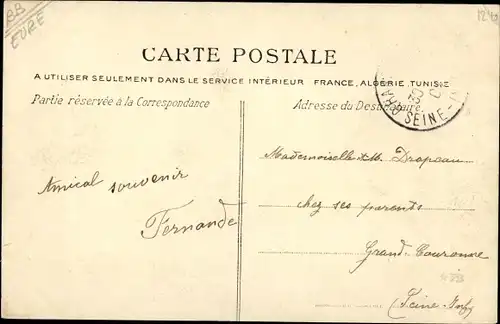 BB
EURE
CARTE POSTALE
A UTILISER SEULEMENT DANS LE SERVICE INTÉRIEUR FRANCE, ALGÉRIE, TUNISIE
Partie réservée à la Correspondance
Adresse du Destinataire.
SEINE-
Mademoiselle M. Drapeau
Amical souvenir
chez ses parents
Fernande
Grand. Couronne
(Seine-Infre)